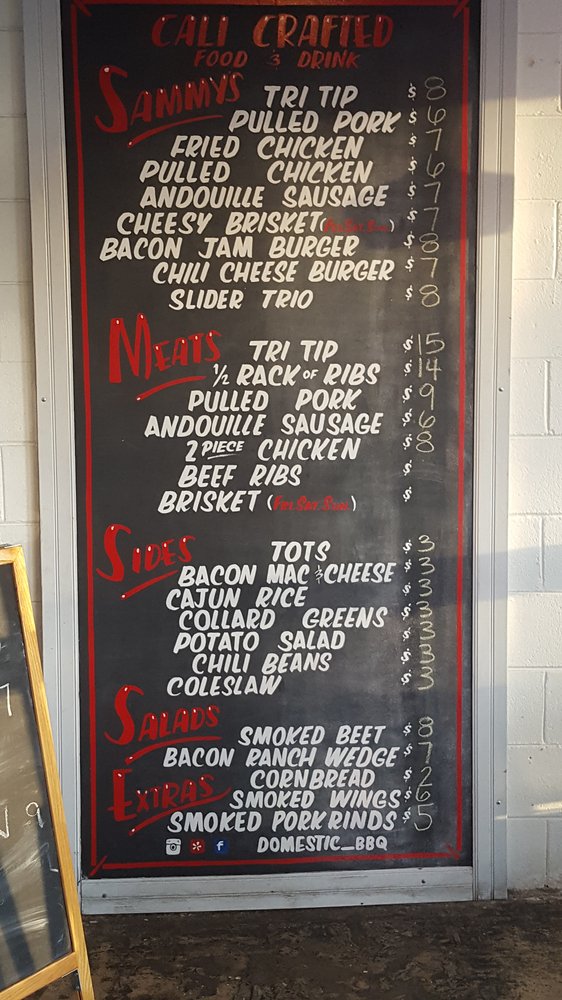 CALI CRAFTED
FOOD & DRINK
SAMMYS
TRI TIP $ 8
PULLED PORK $ 6
FRIED CHICKEN $ 7
PULLED CHICKEN $ 6
ANDOUILLE SAUSAGE $ 7
CHEESY BRISKET (FRI. SAT. SUN.) $ 7
BACON JAM BURGER $ 8
CHILI CHEESE BURGER $ 7
SLIDER TRIO $ 8
MEATS
TRI TIP $ 15
1/2 RACK OF RIBS $ 14
PULLED PORK $ 9
ANDOUILLE SAUSAGE $ 6
2 PIECE CHICKEN $ 8
BEEF RIBS $
BRISKET (FRI. SAT. SUN.) $
SIDES
TOTS $ 3
BACON MAC & CHEESE $ 3
CAJUN RICE $ 3
COLLARD GREENS $ 3
POTATO SALAD $ 3
CHILI BEANS $ 3
COLESLAW $ 3
SALADS
SMOKED BEET $ 8
BACON RANCH WEDGE $ 7
EXTRAS
CORNBREAD $ 2
SMOKED WINGS $ 6
SMOKED PORK RINDS $ 5
DOMESTIC_BBQ
7
9